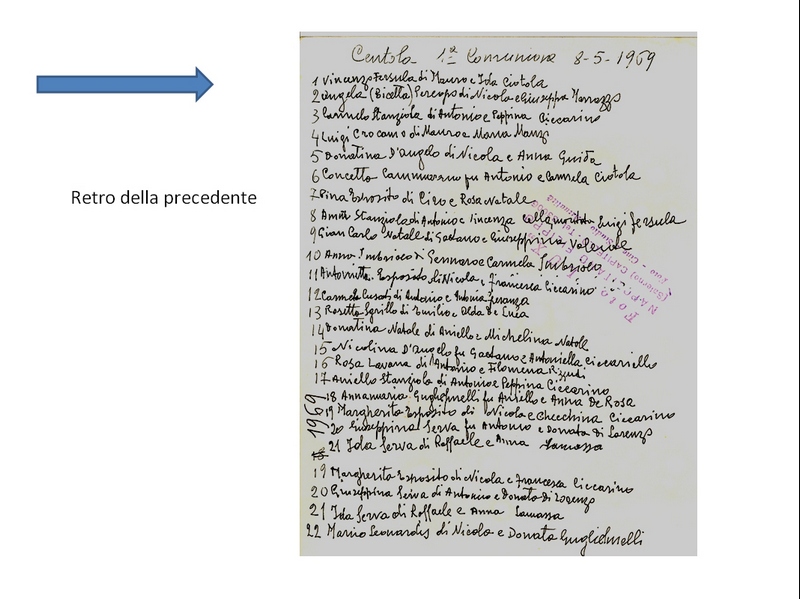 Retro della precedente
Centola 1ª Comunione 8-5-1969
1 Vincenzo Fersula di Mauro e Ida Ciotola
2 Angela (Bicetta) Percopo di Nicola e Giuseppa Marrazzo
3 Carmelo Stanziola di Antonio e Peppina Ciccarino
4 Luigi Crocamo di Mauro e Maria
5 Donatina D'Angelo di Nicola e Anna Guida
6 Concetta Cammarano fu Antonio e Carmela Ciotola
7 Pina Esposito di Ciro e Rosa Natale
8 Stanziola di Antonio e Vincenza Luigi Fersula
9 Gian Carlo Natale di Gaetano e Giuseppina
10 Anna Imbriaco di Gennaro e Carmela
11 Antonietta Esposito di Nicola e Francesca Ciccarino
12 Carmela di Antonio e Antonia
13 Rosetta Sgrillo di Emilio e Alda De Luca
14 Donatina Natale di Aniello e Michelina Natale
15 Nicolina D'Angelo fu Gaetano e Antoniella Ciccariello
16 Rosa Lavana di Antonio e Filomena Rizzuti
17 Aniello Stanziola di Antonio e Peppina Ciccarino
18 Annamaria Guglielmelli fu Aniello e Anna De Rosa
19 Margherita Esposito di Nicola e Checchina Ciccarino
20 Giuseppina Serva fu Antonio e Donata Di Lorenzo
21 Ida Serva di Raffaele e Anna Lamassa
1969
19 Margherita Esposito di Nicola e Francesca Ciccarino
20 Giuseppina Serva di Antonio e Donata Di Lorenzo
21 Ida Serva di Raffaele e Anna Lamassa
22 Mario Leonardis di Nicola e Donata Guglielmelli
Foto